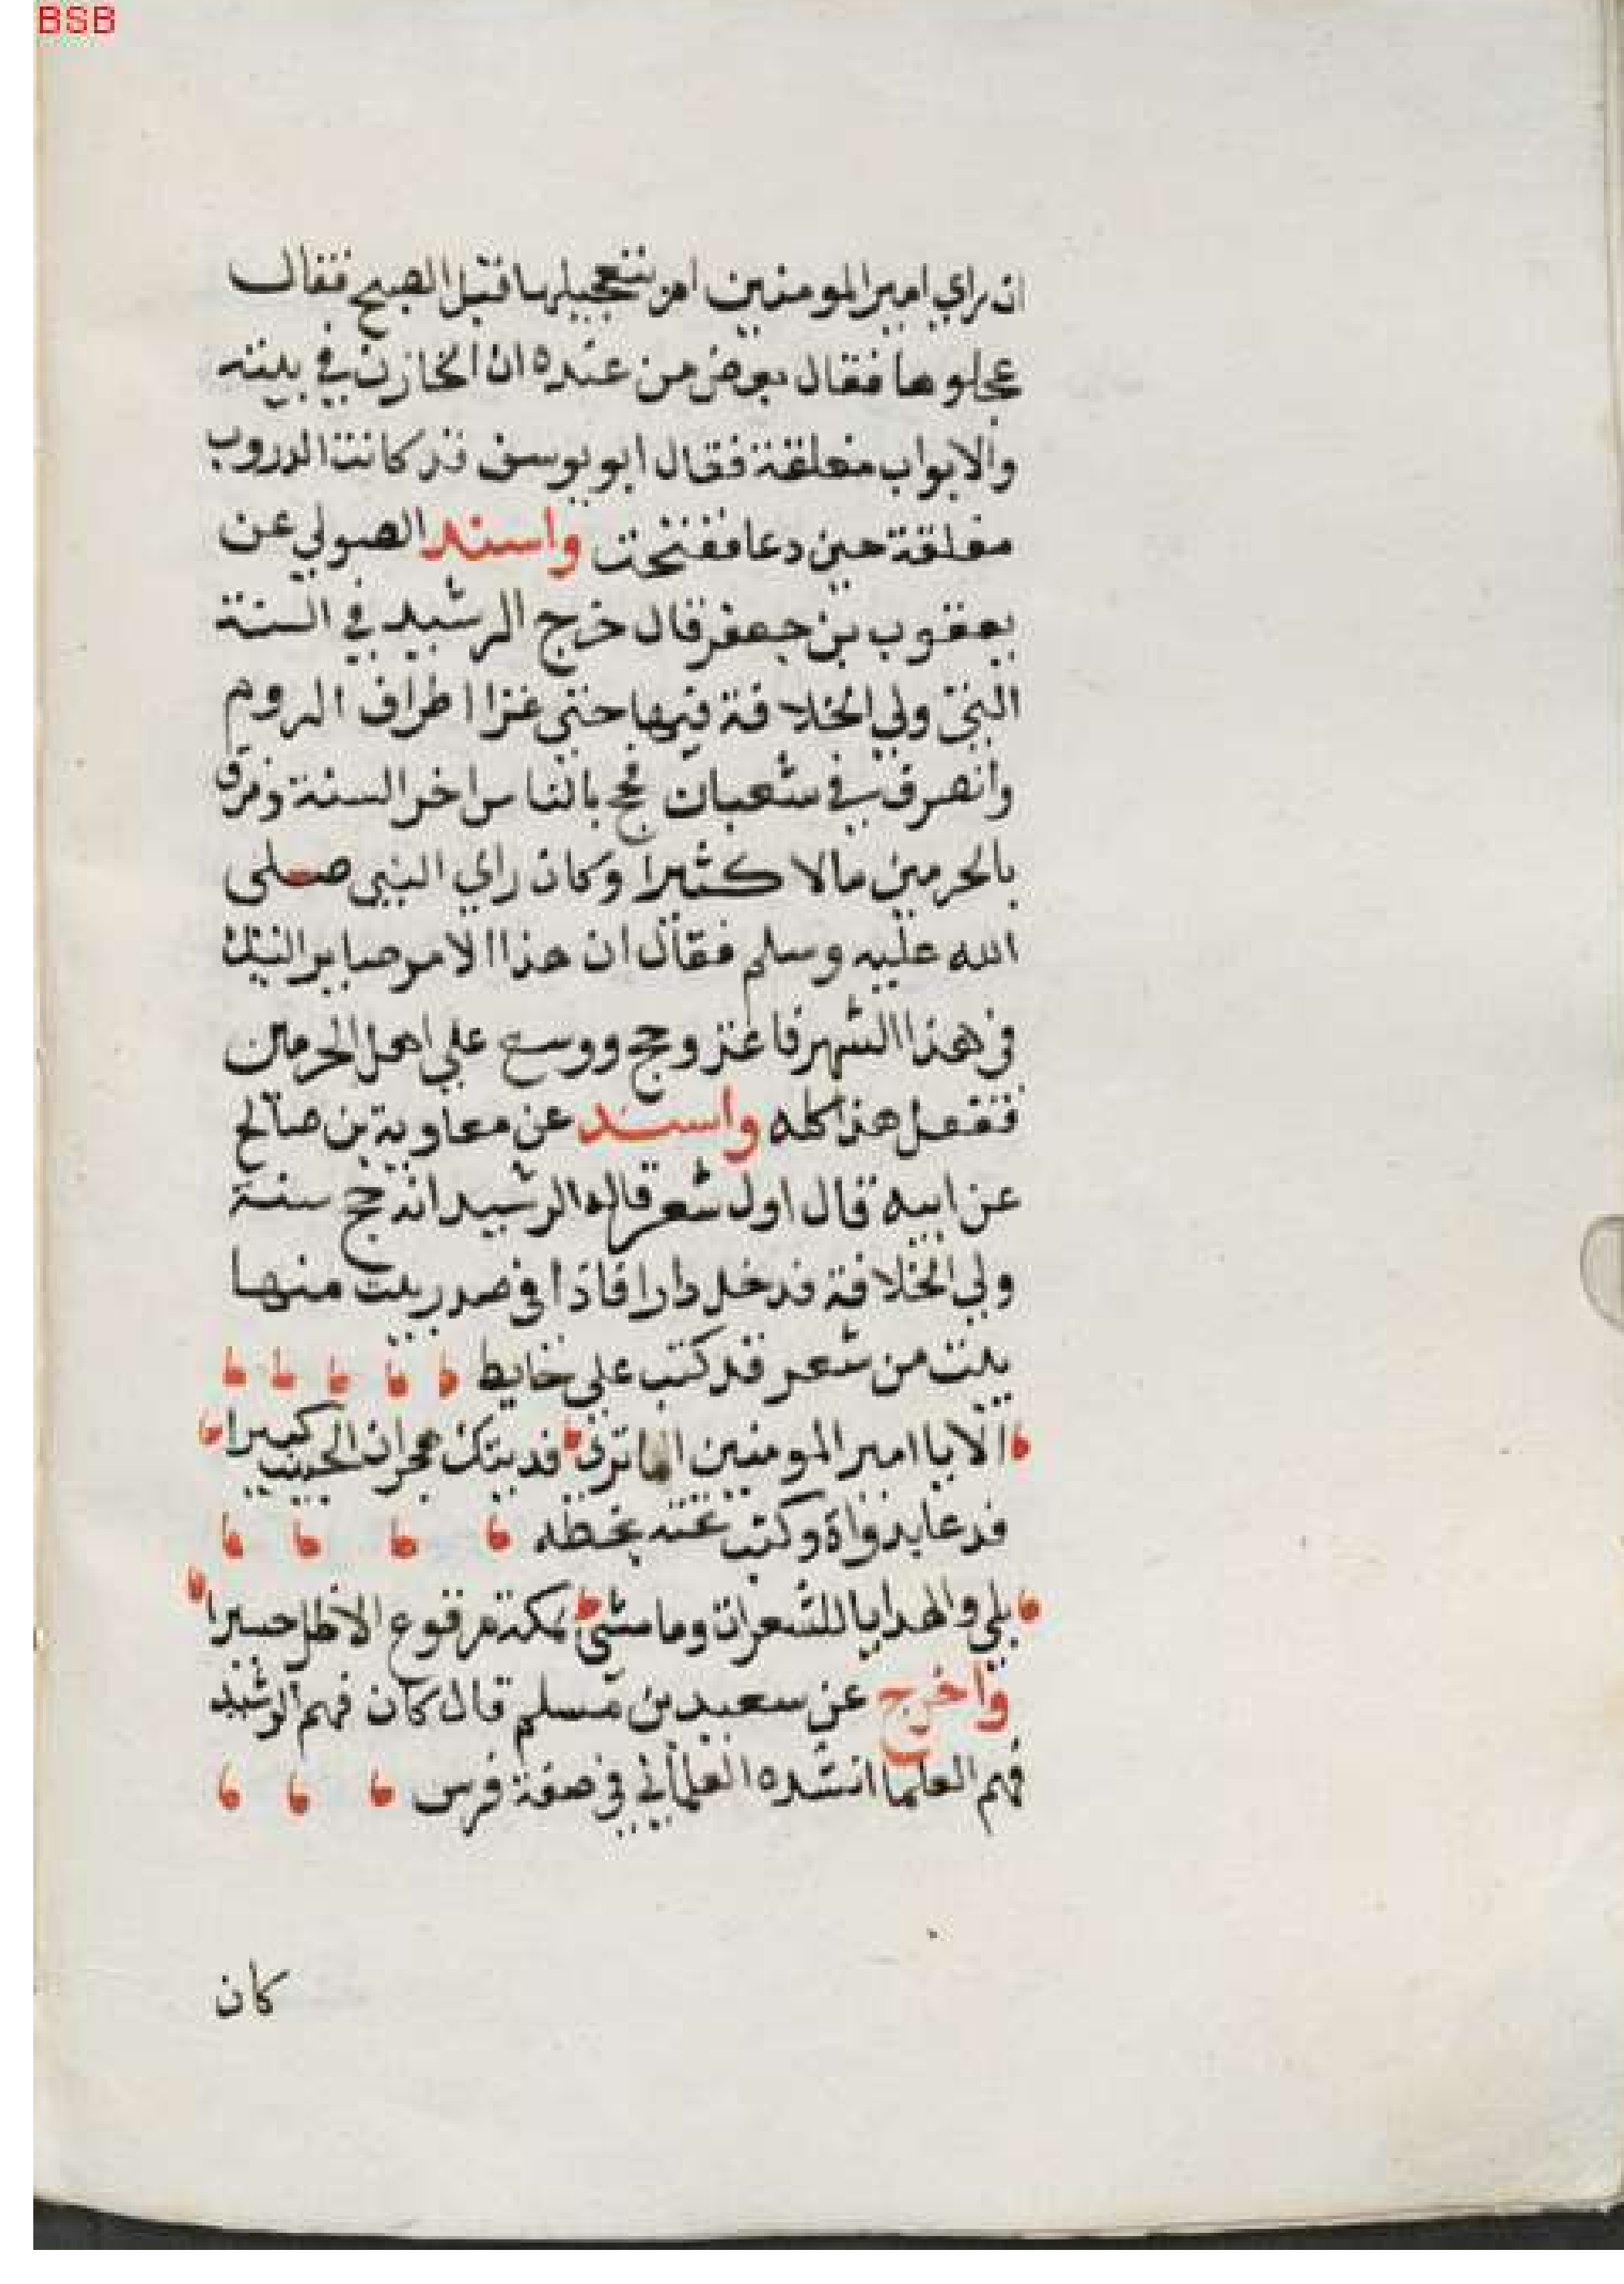 BSB
ان راي امير المومنين امر بتعجيلها قبل الصبح فقال
عجلوها فقال بعض من عنده ان الخازن في بيته
والابواب مغلقة فقال ابو يوسف قد كانت الدروب
مغلقة حين دعا ففتحت واسند الصولي عن
يعقوب بن جعفر قال خرج الرشيد في السنة
التي ولي الخلافة فيها حتى غزا اطراف الروم
وانصرف في شعبان فحج بالناس اخر السنة وفرق
بالحرمين مالا كثيرا وكان راي النبي صلى
الله عليه وسلم فقال ان هذا الامر صاير اليك
في هذا الشهر فاغز وحج ووسع علي اهل الحرمين
ففعل هذا كله واسند عن معاوية بن صالح
عن ابيه قال اول شعر قاله الرشيد انه حج سنة
ولي الخلافة فدخل دارا فاذا في صدر بيت منها
بيت من شعر قد كتب علي حايط
الا يا امير المومنين اما ترى فديتك هجران الحبيب كبيرا
فدعا بدواة وكتب تحته بخطه
بلي والهدايا المشعرات وما مشى بمكة مرفوع الاظل حسيرا
واخرج عن سعيد بن مسلم قال كان فهم الرشيد
فهم العلما انشده العماني في صفة فرس
كان